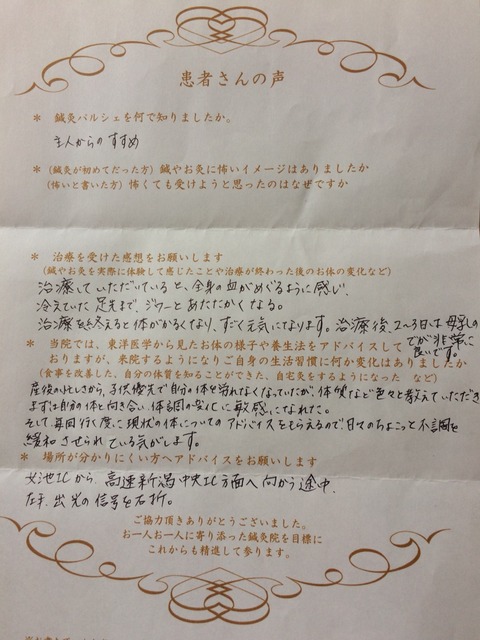 患者さんの声
＊ 鍼灸パルシェを何で知りましたか。
主人からのすすめ
＊ （鍼灸が初めてだった方）鍼やお灸に怖いイメージはありましたか
（怖いと書いた方）怖くても受けようと思ったのはなぜですか
＊ 治療を受けた感想をお願いします
（鍼やお灸を実際に体験して感じたことや治療が終わった後のお体の変化など）
治療していただいていると、全身の血がめぐるように感じ、
冷えていた足先まで、ジワーとあたたかくなる。
治療を終えると体がかるくなり、すごく元気になります。治療後、2〜3日は母乳の
でが非常に
良いです。
＊ 当院では、東洋医学から見たお体の様子や養生法をアドバイスして
おりますが、来院するようになりご自身の生活習慣に何か変化はありましたか
（食事を改善した、自分の体管を知ることができた、自宅灸をするようになった など）
産後の忙しさから、子供優先で自分の体を労れなくなっていたが、体質など色々と教えていただき
まずは自分の体と向き合い、体調の変化に敏感になれた。
そして、毎回行く度に現状の体についてのアドバイスをもらえるので、日々のちょこっと不調を
緩和させられている気がします。
＊ 場所が分かりにくい方へアドバイスをお願いします
女池ICから、高速新潟中央IC方面へ向かう途中、
左手、出光の信号を右折。
ご協力頂きありがとうございました。
お一人お一人に寄り添った鍼灸院を目標に
これからも精進して参ります。